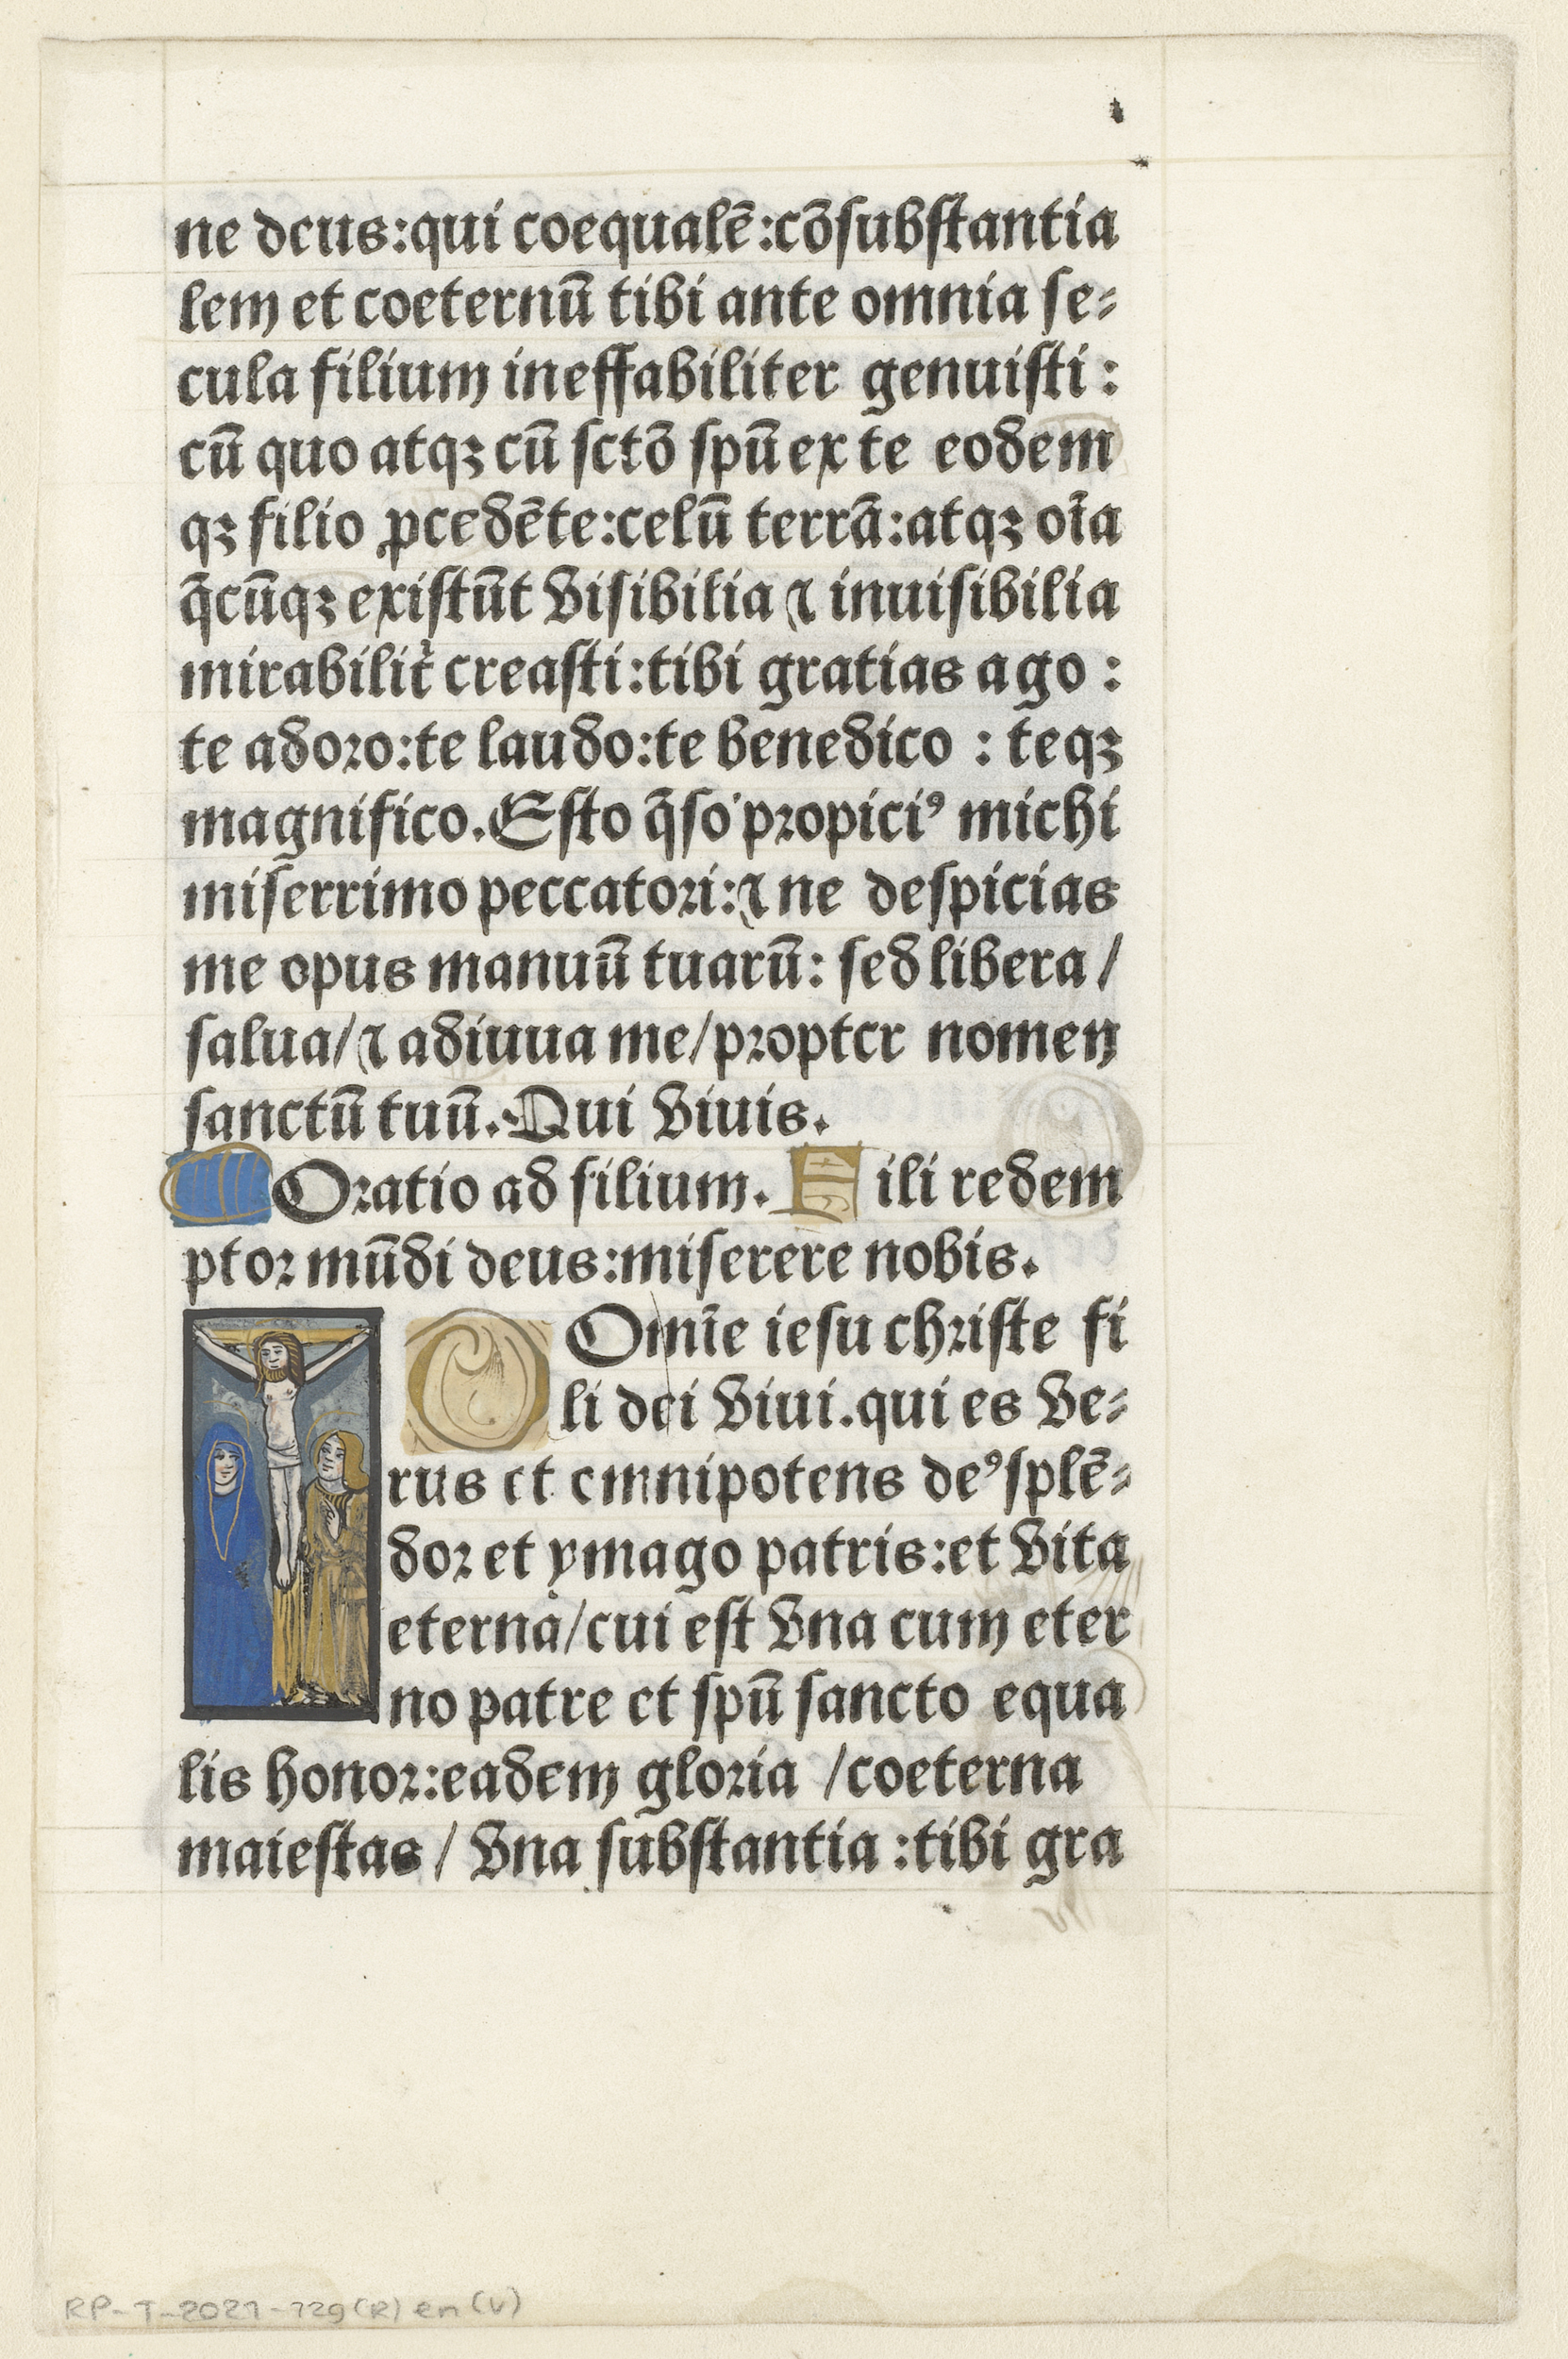 ne deus:qui coequalē:cōsubstantia
lem et coeternū tibi ante omnia se⸗
cula filium ineffabiliter genuisti :
cū quo atqꝫ cū sctō spū ex te eodem
qꝫ filio ꝓcedēte:celū terrā:atqꝫ oīa
q̄cūqꝫ existūt visibilia ⁊ inuisibilia
mirabilit̄ creasti:tibi gratias ago :
te adoro:te laudo:te benedico : teqꝫ
magnifico.Esto q̄so propiciꝰ michi
miserrimo peccatori:⁊ ne despicias
me opus manuū tuarū: sed libera /
salua/⁊ adiuua me/propter nomen
sanctū tuū.Qui viuis.
Oratio ad filium. F ili redem
ptor mūdi deus:miserere nobis.
D Omīe iesu christe fi
li dei viui.qui es ve⸗
rus et omnipotens deꝰ splē⸗
dor et ymago patris:et vita
eterna/cui est vna cum eter
no patre et spū sancto equa
lis honor:eadem gloria /coeterna
maiestas / vna substantia :tibi gra
RP-T-2021-129(R) en (V)